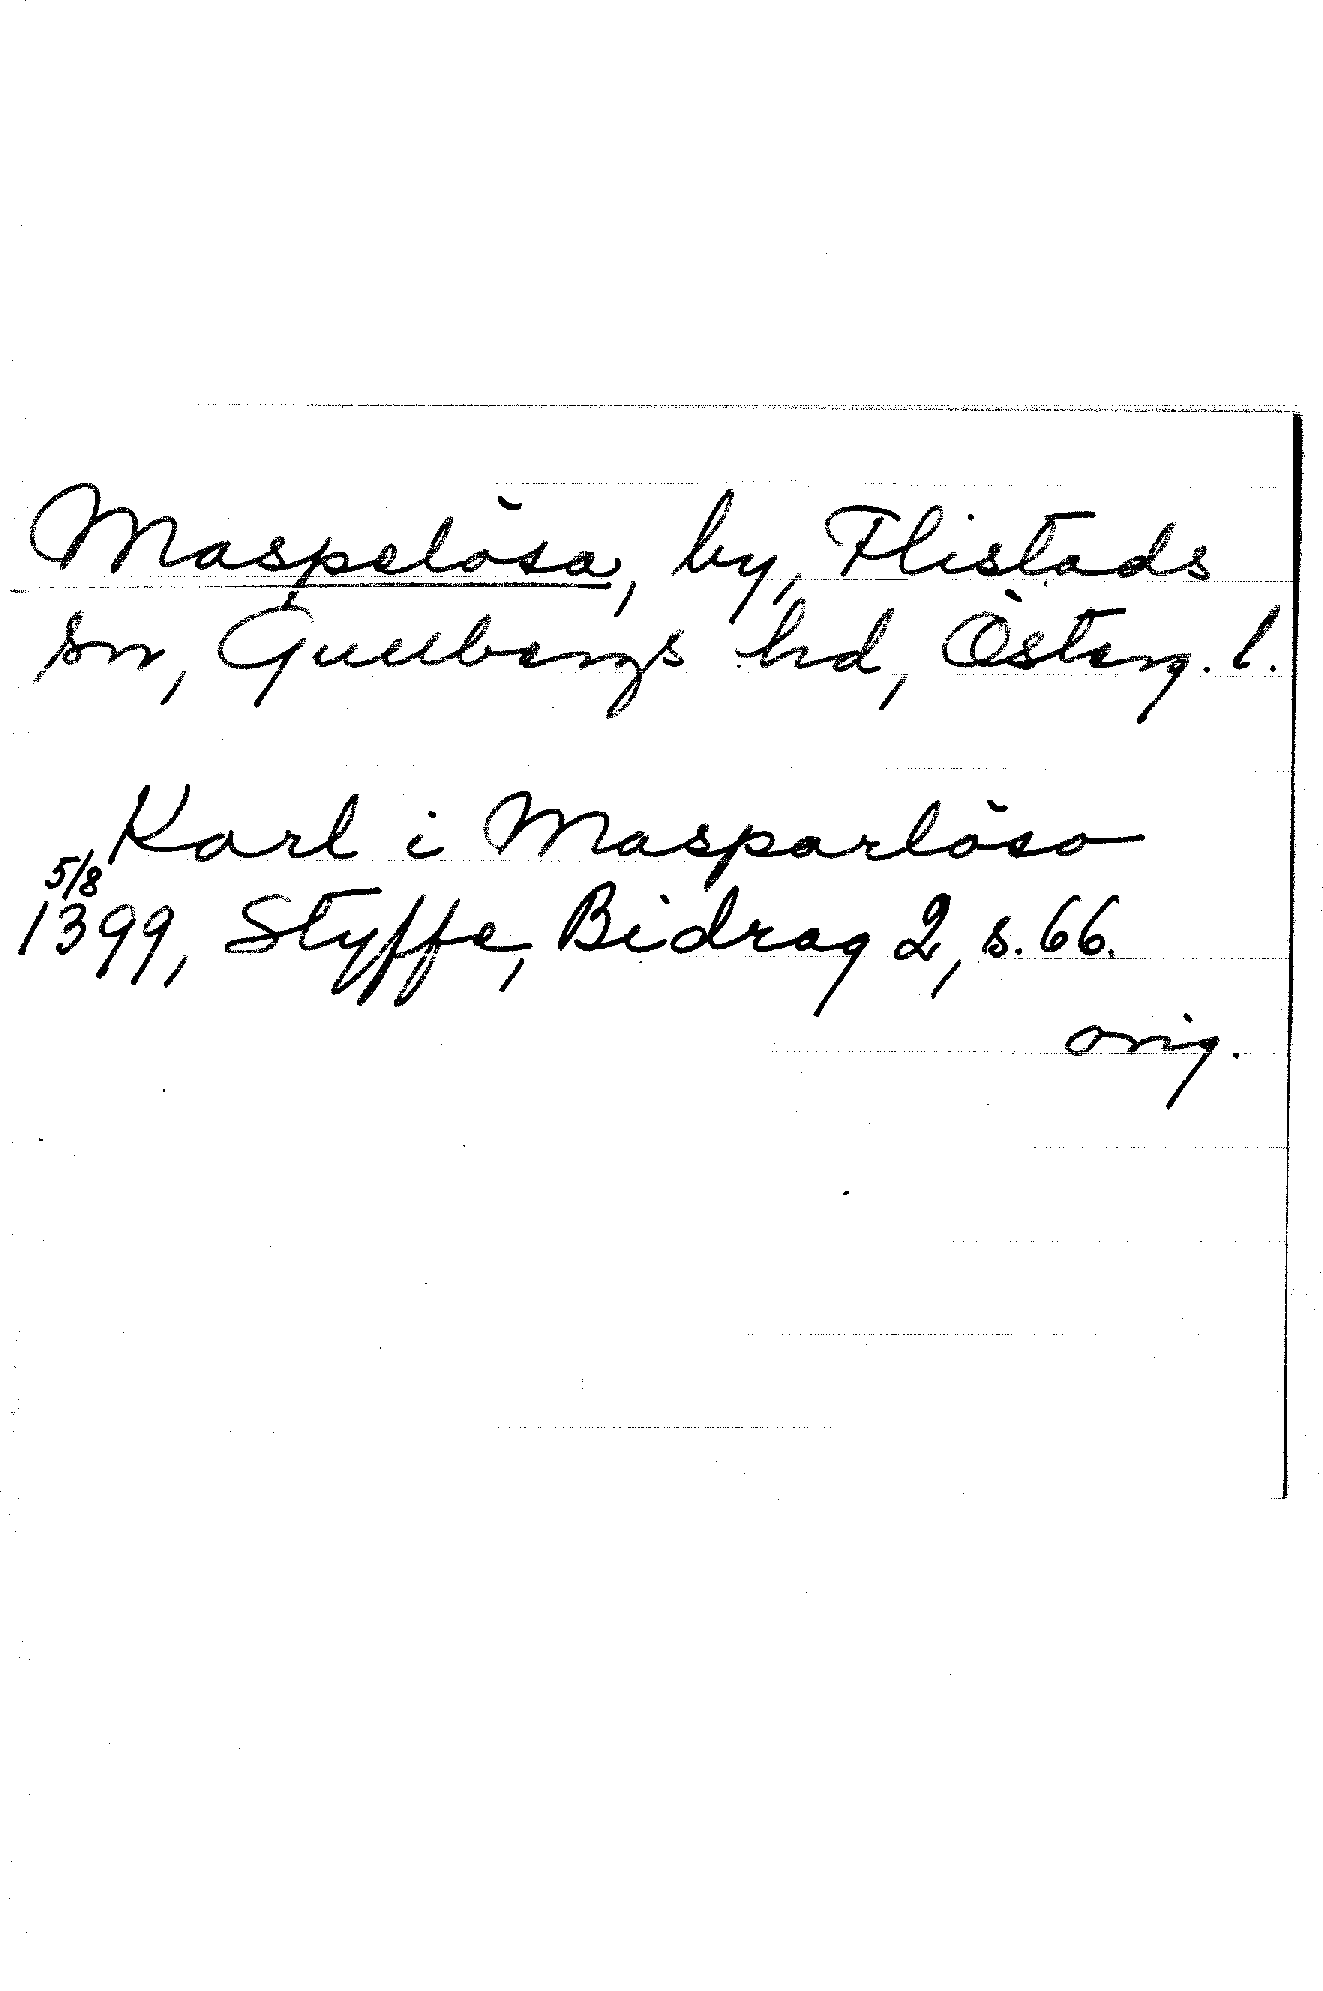 Maspelösa, by, Flistads
sn, Gullbergs hd, Österg. l.
Karl i Masparlöso
5/8
1399, Styffe, Bidrag 2, s. 66.
orig.